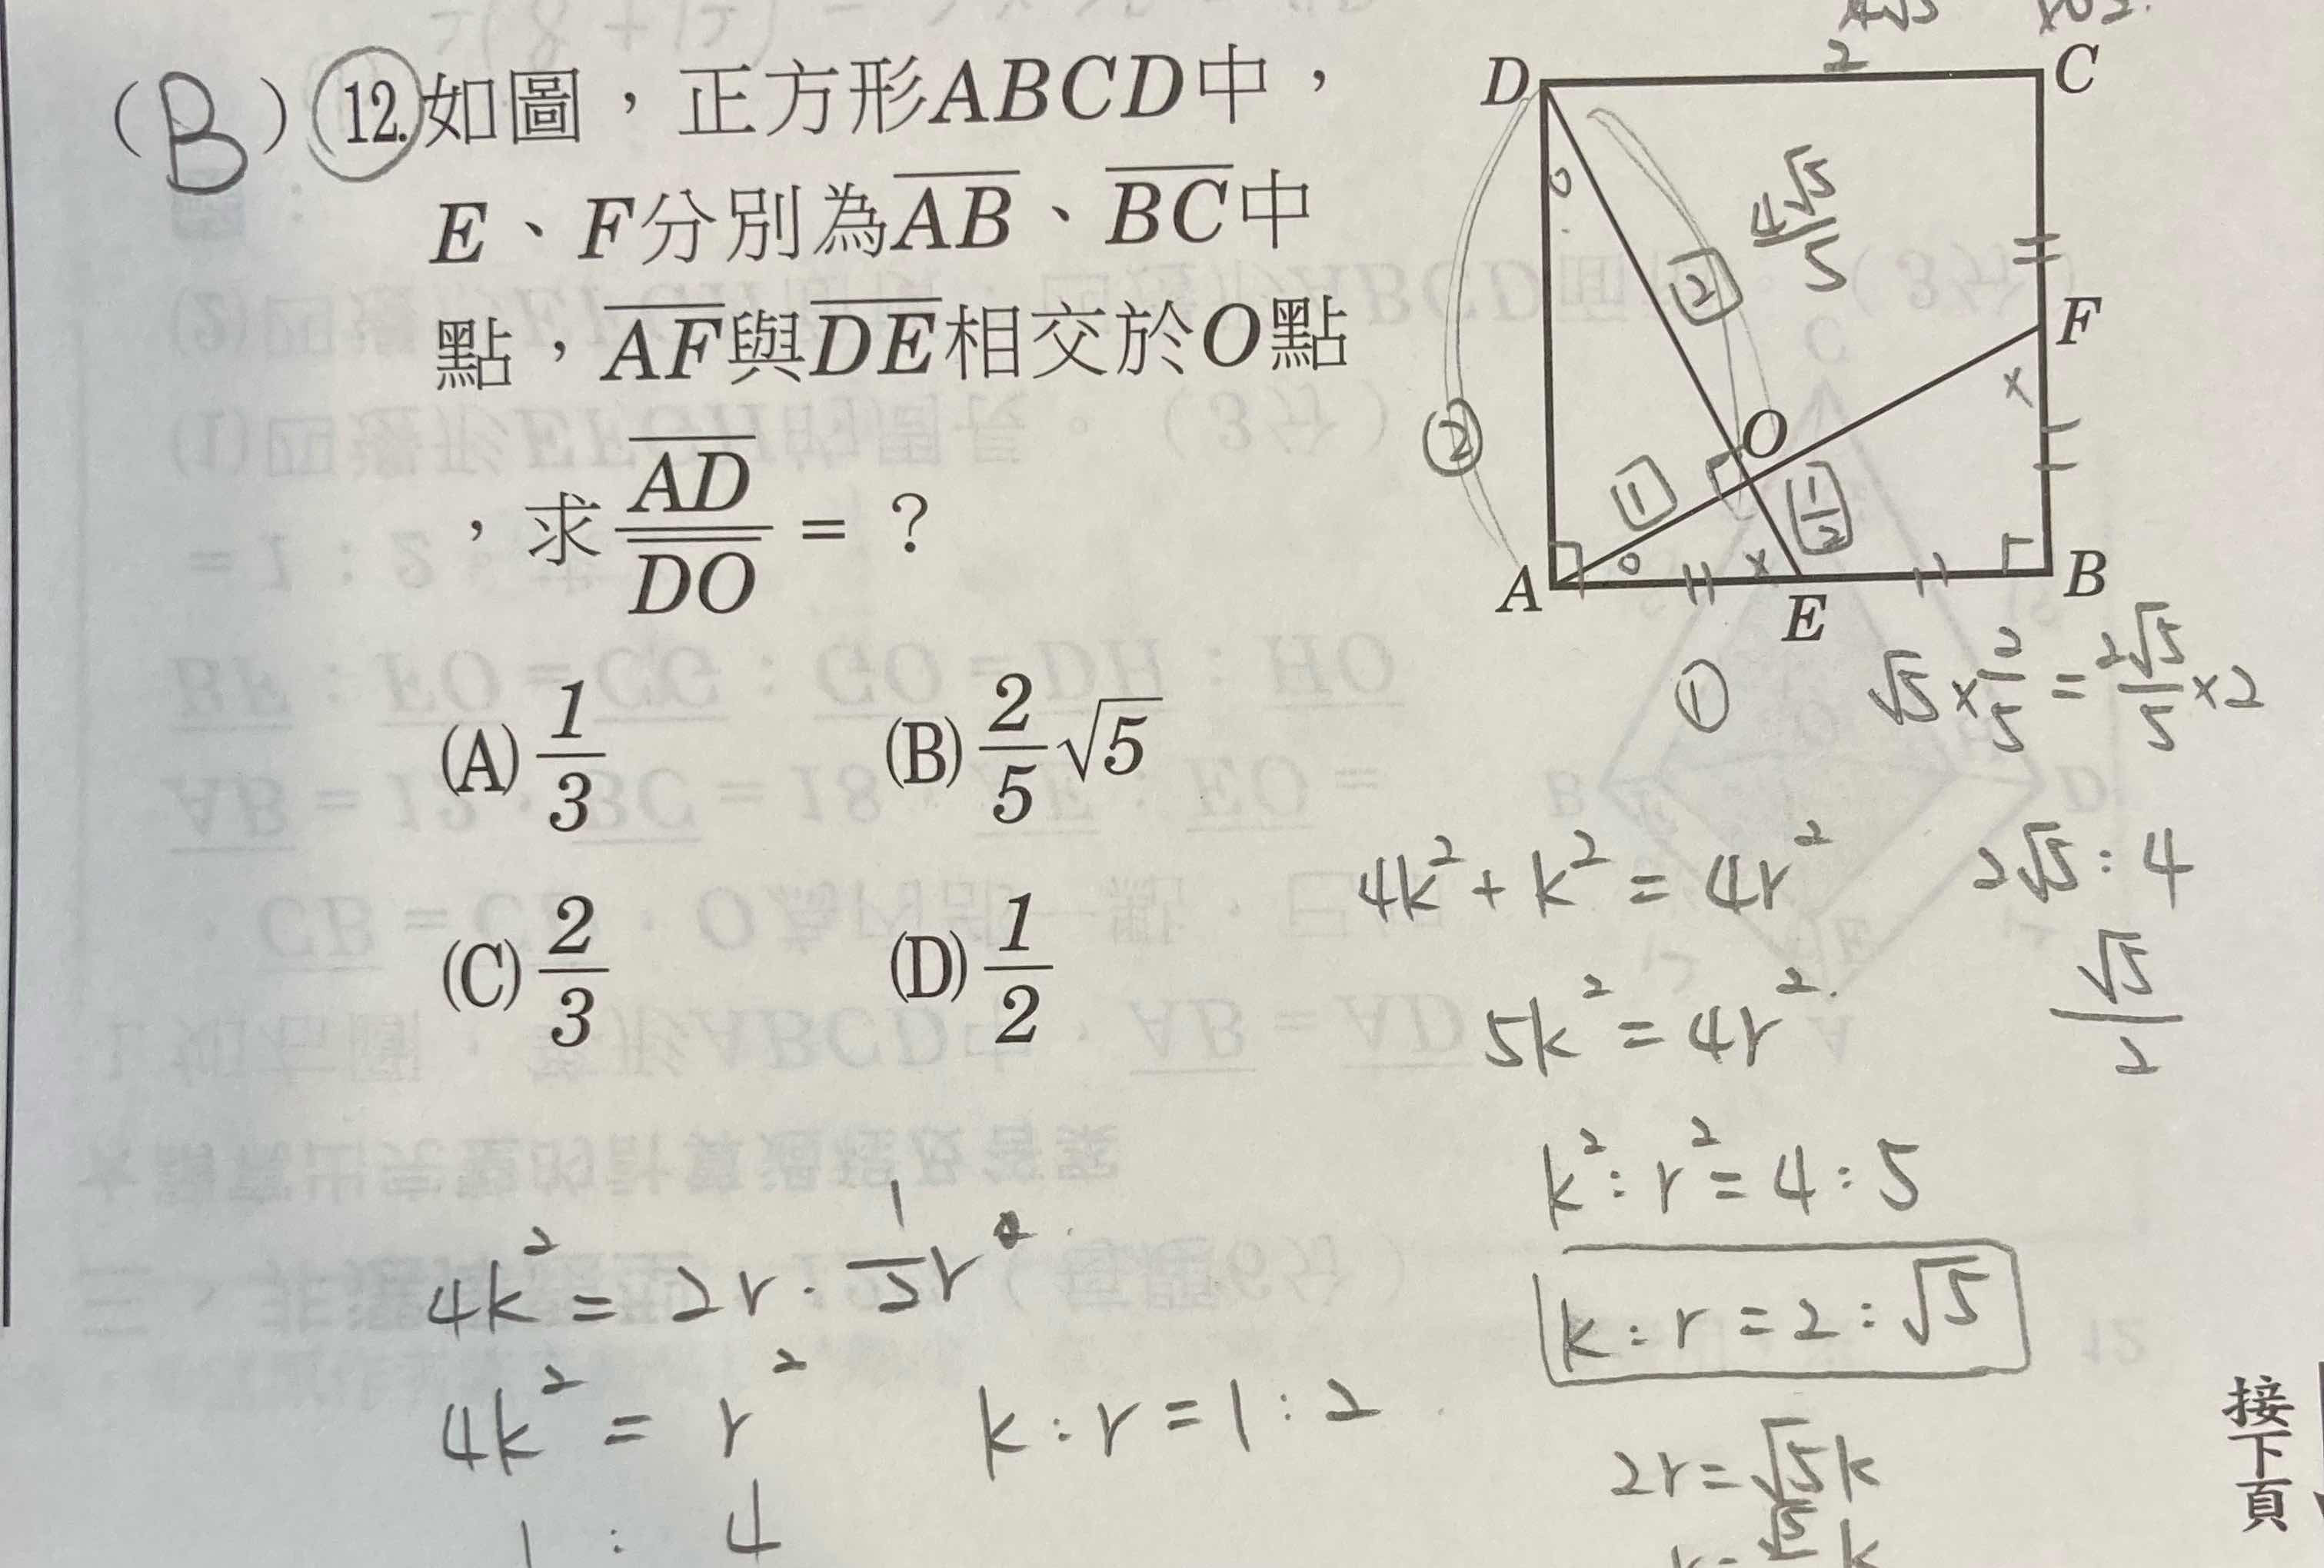 (B) 12.如圖，正方形ABCD中，
E、F分別為AB、BC中
點，AF與DE相交於O點
，求AD/DO = ？
(A) 1/3 (B) 2/5 √5
(C) 2/3 (D) 1/2
D 2 C
4√5/5
2
F
×
2
O
1
1/2
A ×
E B
1
√5 × 2/5 = 2√5/5 ×2
4k² + k² = 4r²
2√5 : 4
5k² = 4r²
√5/2
k² : r² = 4 : 5
k : r = 2 : √5
2r = √5k
4k² = 2r · 1/2 r
4k² = r²
k : r = 1 : 2
1 : 4
接下頁